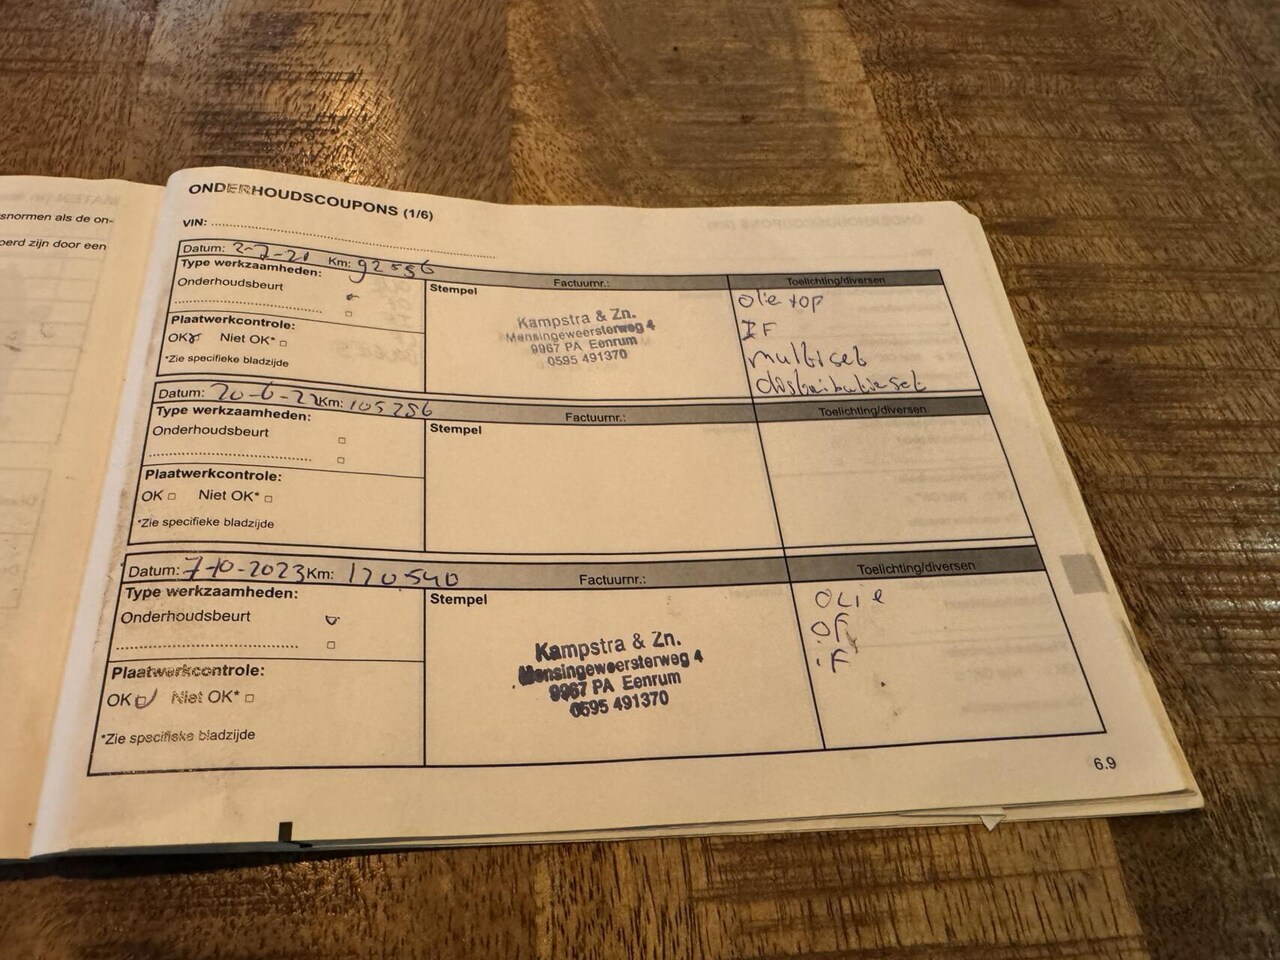 snormen als de on-
oerd zijn door een
ONDERHOUDSCOUPONS (1/6)
VIN:
Datum: 2-7-21 Km: 92556
Type werkzaamheden:
Factuurnr.:
Toelichting/diversen
Onderhoudsbeurt
Stempel
Plaatwerkcontrole:
OK Niet OK*
*Zie specifieke bladzijde
Kampstra & Zn.
Mensingeweersterweg 4
9967 PA Eenrum
0595 491370
olie top
IF
multiset
distributieset
Datum: 20-6-22 Km: 105256
Type werkzaamheden:
Factuurnr.:
Toelichting/diversen
Onderhoudsbeurt
Stempel
Plaatwerkcontrole:
OK Niet OK*
*Zie specifieke bladzijde
Datum: 7-10-2023 Km: 120540
Type werkzaamheden:
Factuurnr.:
Toelichting/diversen
Onderhoudsbeurt
Stempel
Plaatwerkcontrole:
OK Niet OK*
*Zie specifieke bladzijde
Kampstra & Zn.
Mensingeweersterweg 4
9967 PA Eenrum
0595 491370
OLie
OF
iF
6.9